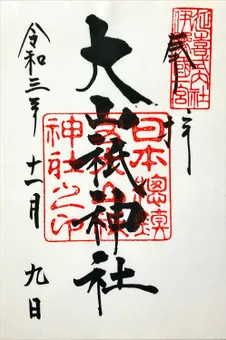 延喜式内社
奉拝
大山祇神社
日本總鎮
神社之印
令和三年 十一月 九日